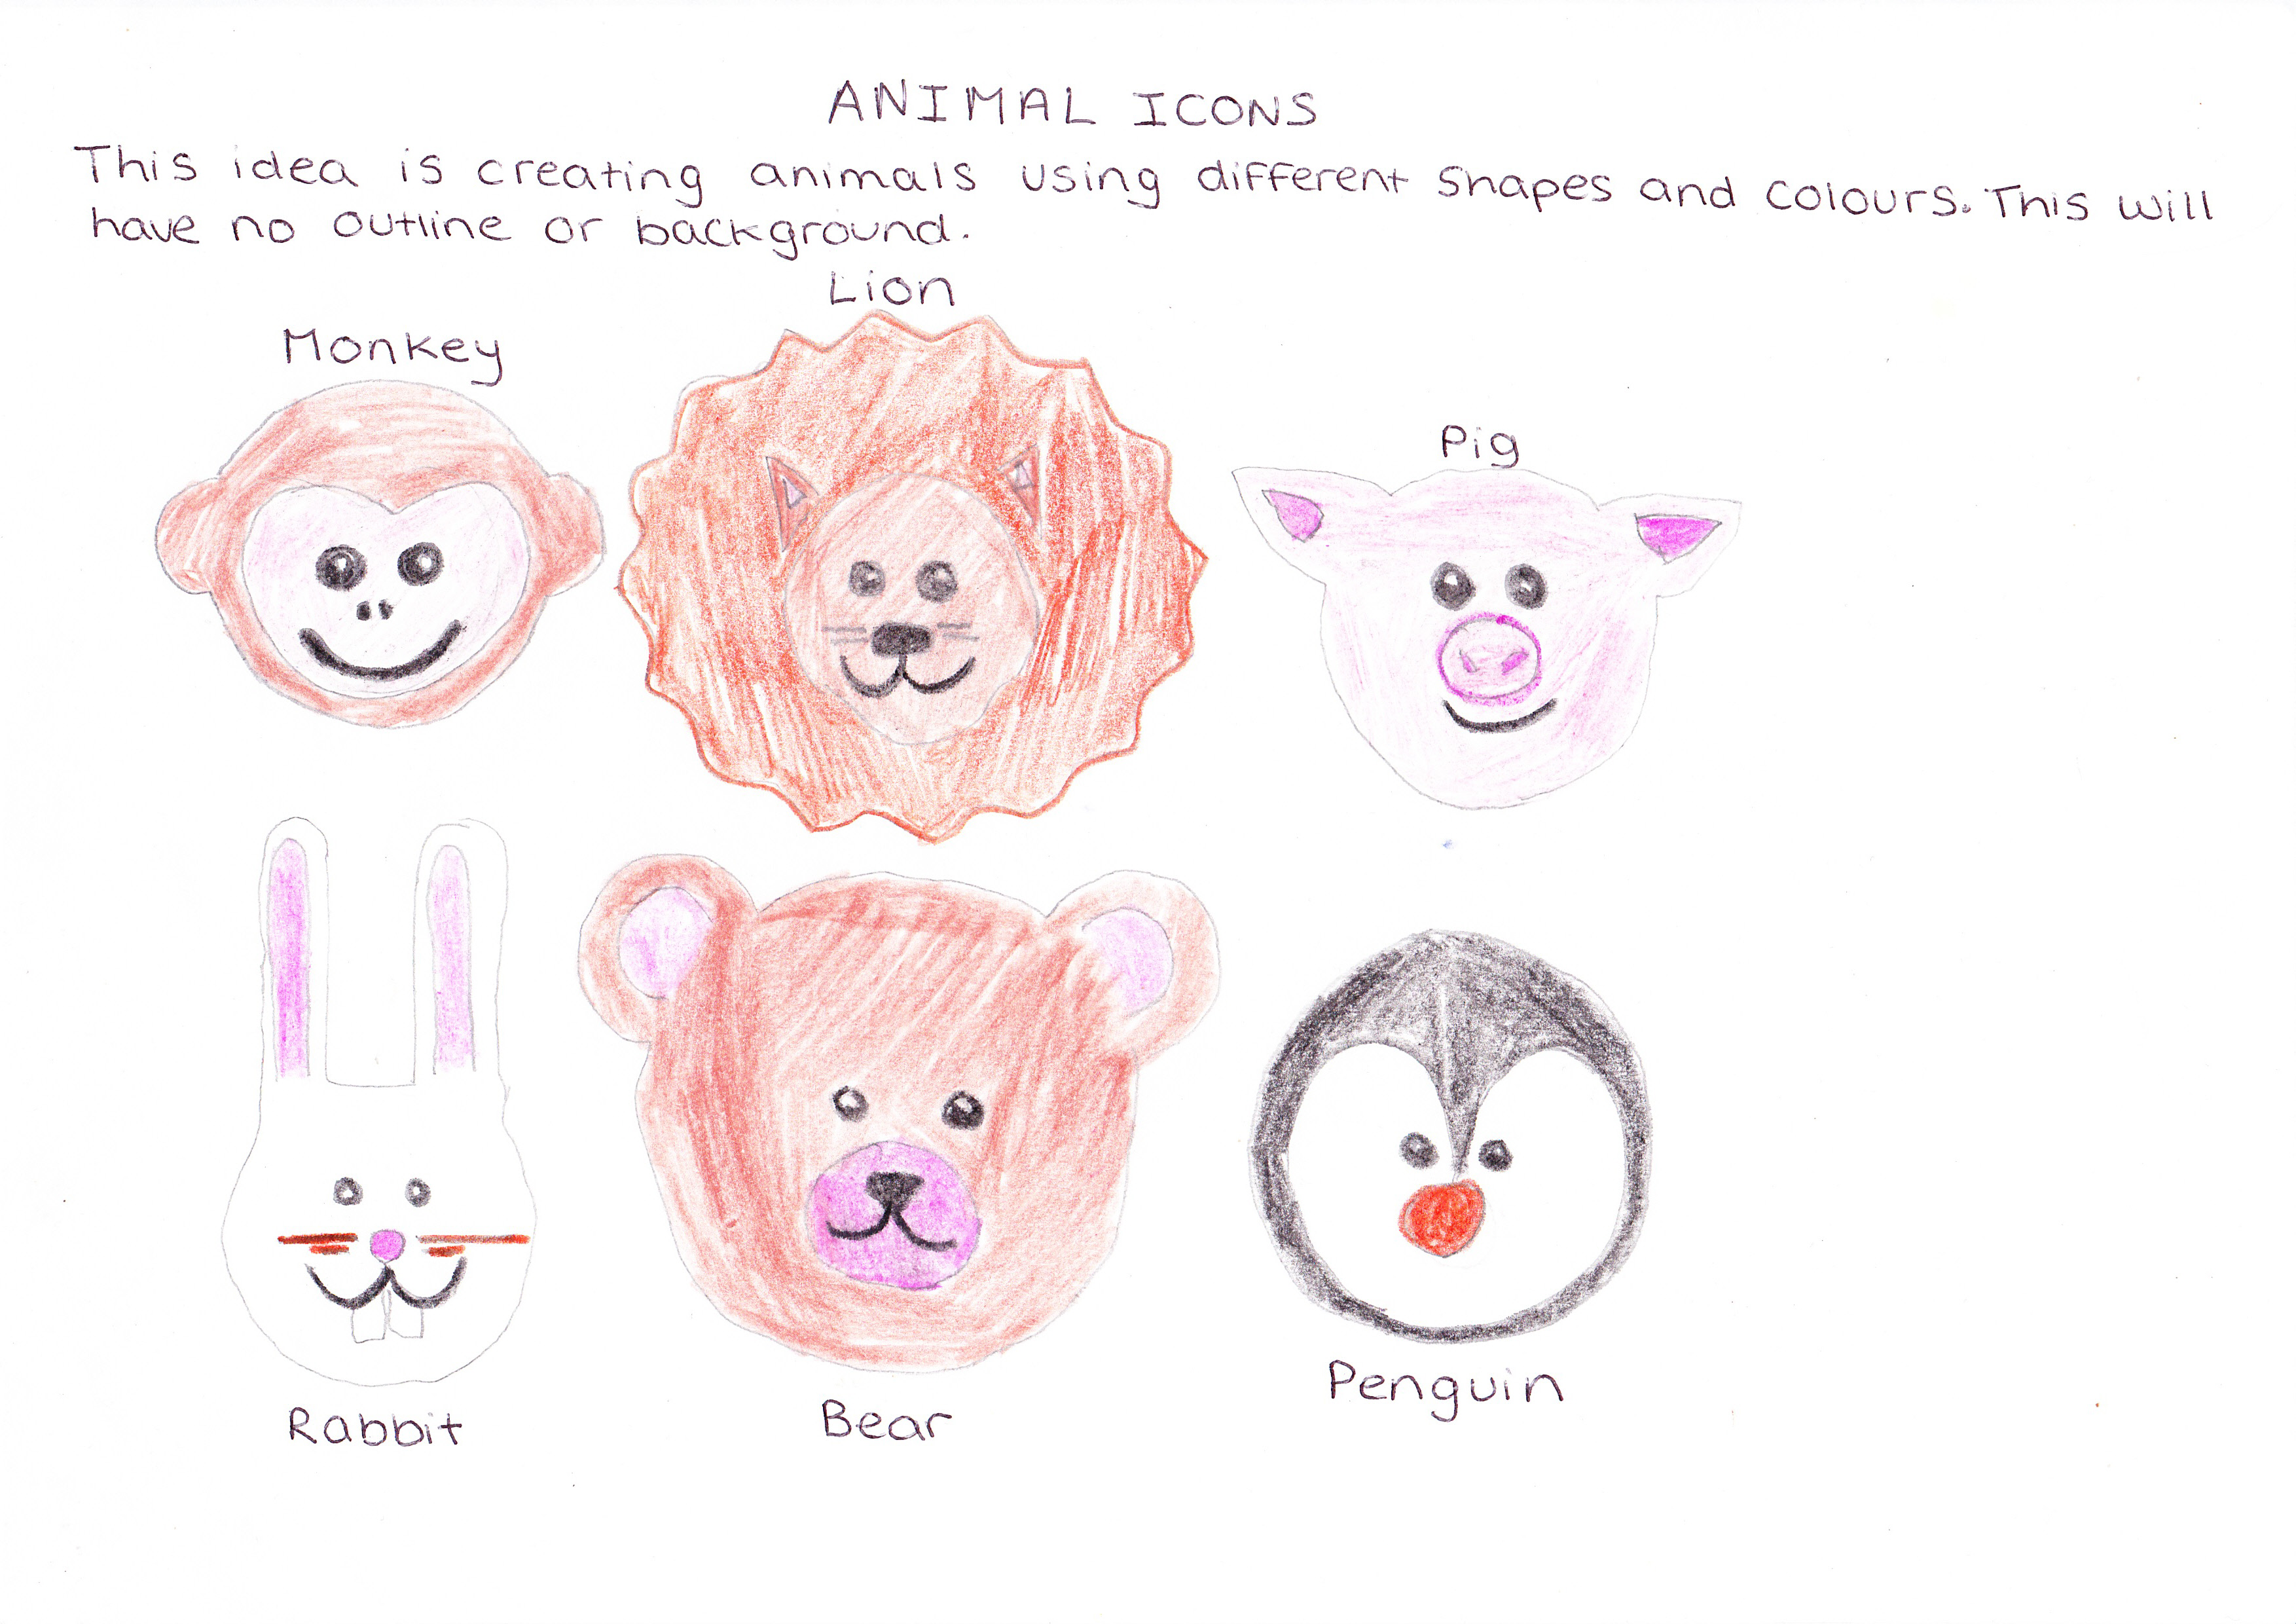 ANIMAL ICONS
This idea is creating animals using different shapes and colours. This will
have no outline or background.
Lion
Monkey
Pig
Rabbit
Bear
Penguin